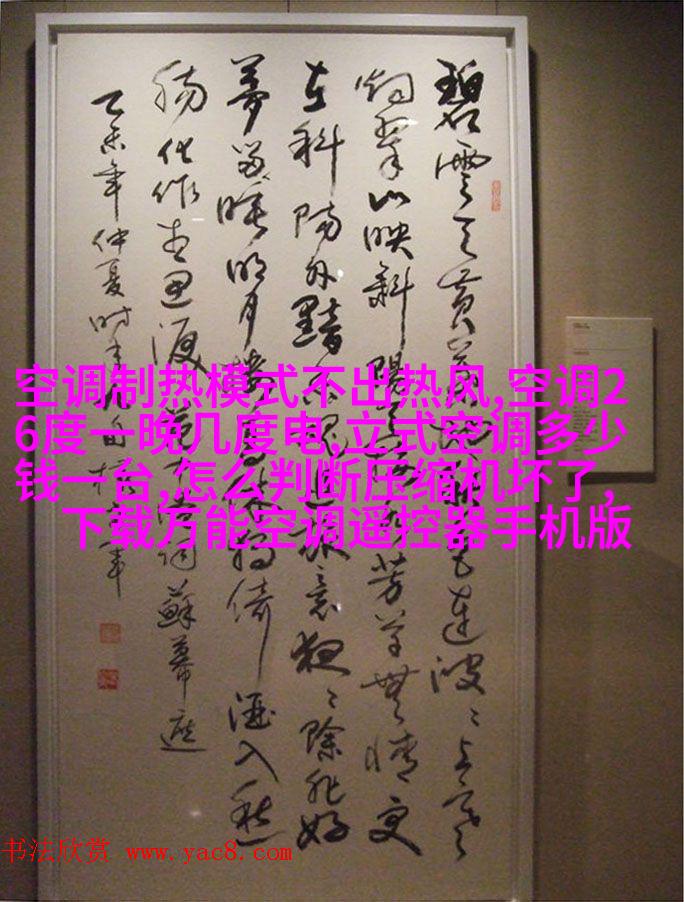 碧雲天黃葉地秋色連波〻上寒
烟翠山映斜陽天接水芳草無情更
在斜陽外黯鄉魂追旅意夜〻除非好
夢留睡明月樓高休獨倚酒入愁
腸化作相思淚 范仲淹詞蘇幕遮
乙未年仲夏时
空调制热模式不出热风,空调2
6度一晚几度电,立式空调多少
钱一台,怎么判断压缩机坏了,
下载万能空调遥控器手机版
书法欣赏 www.yac8.com